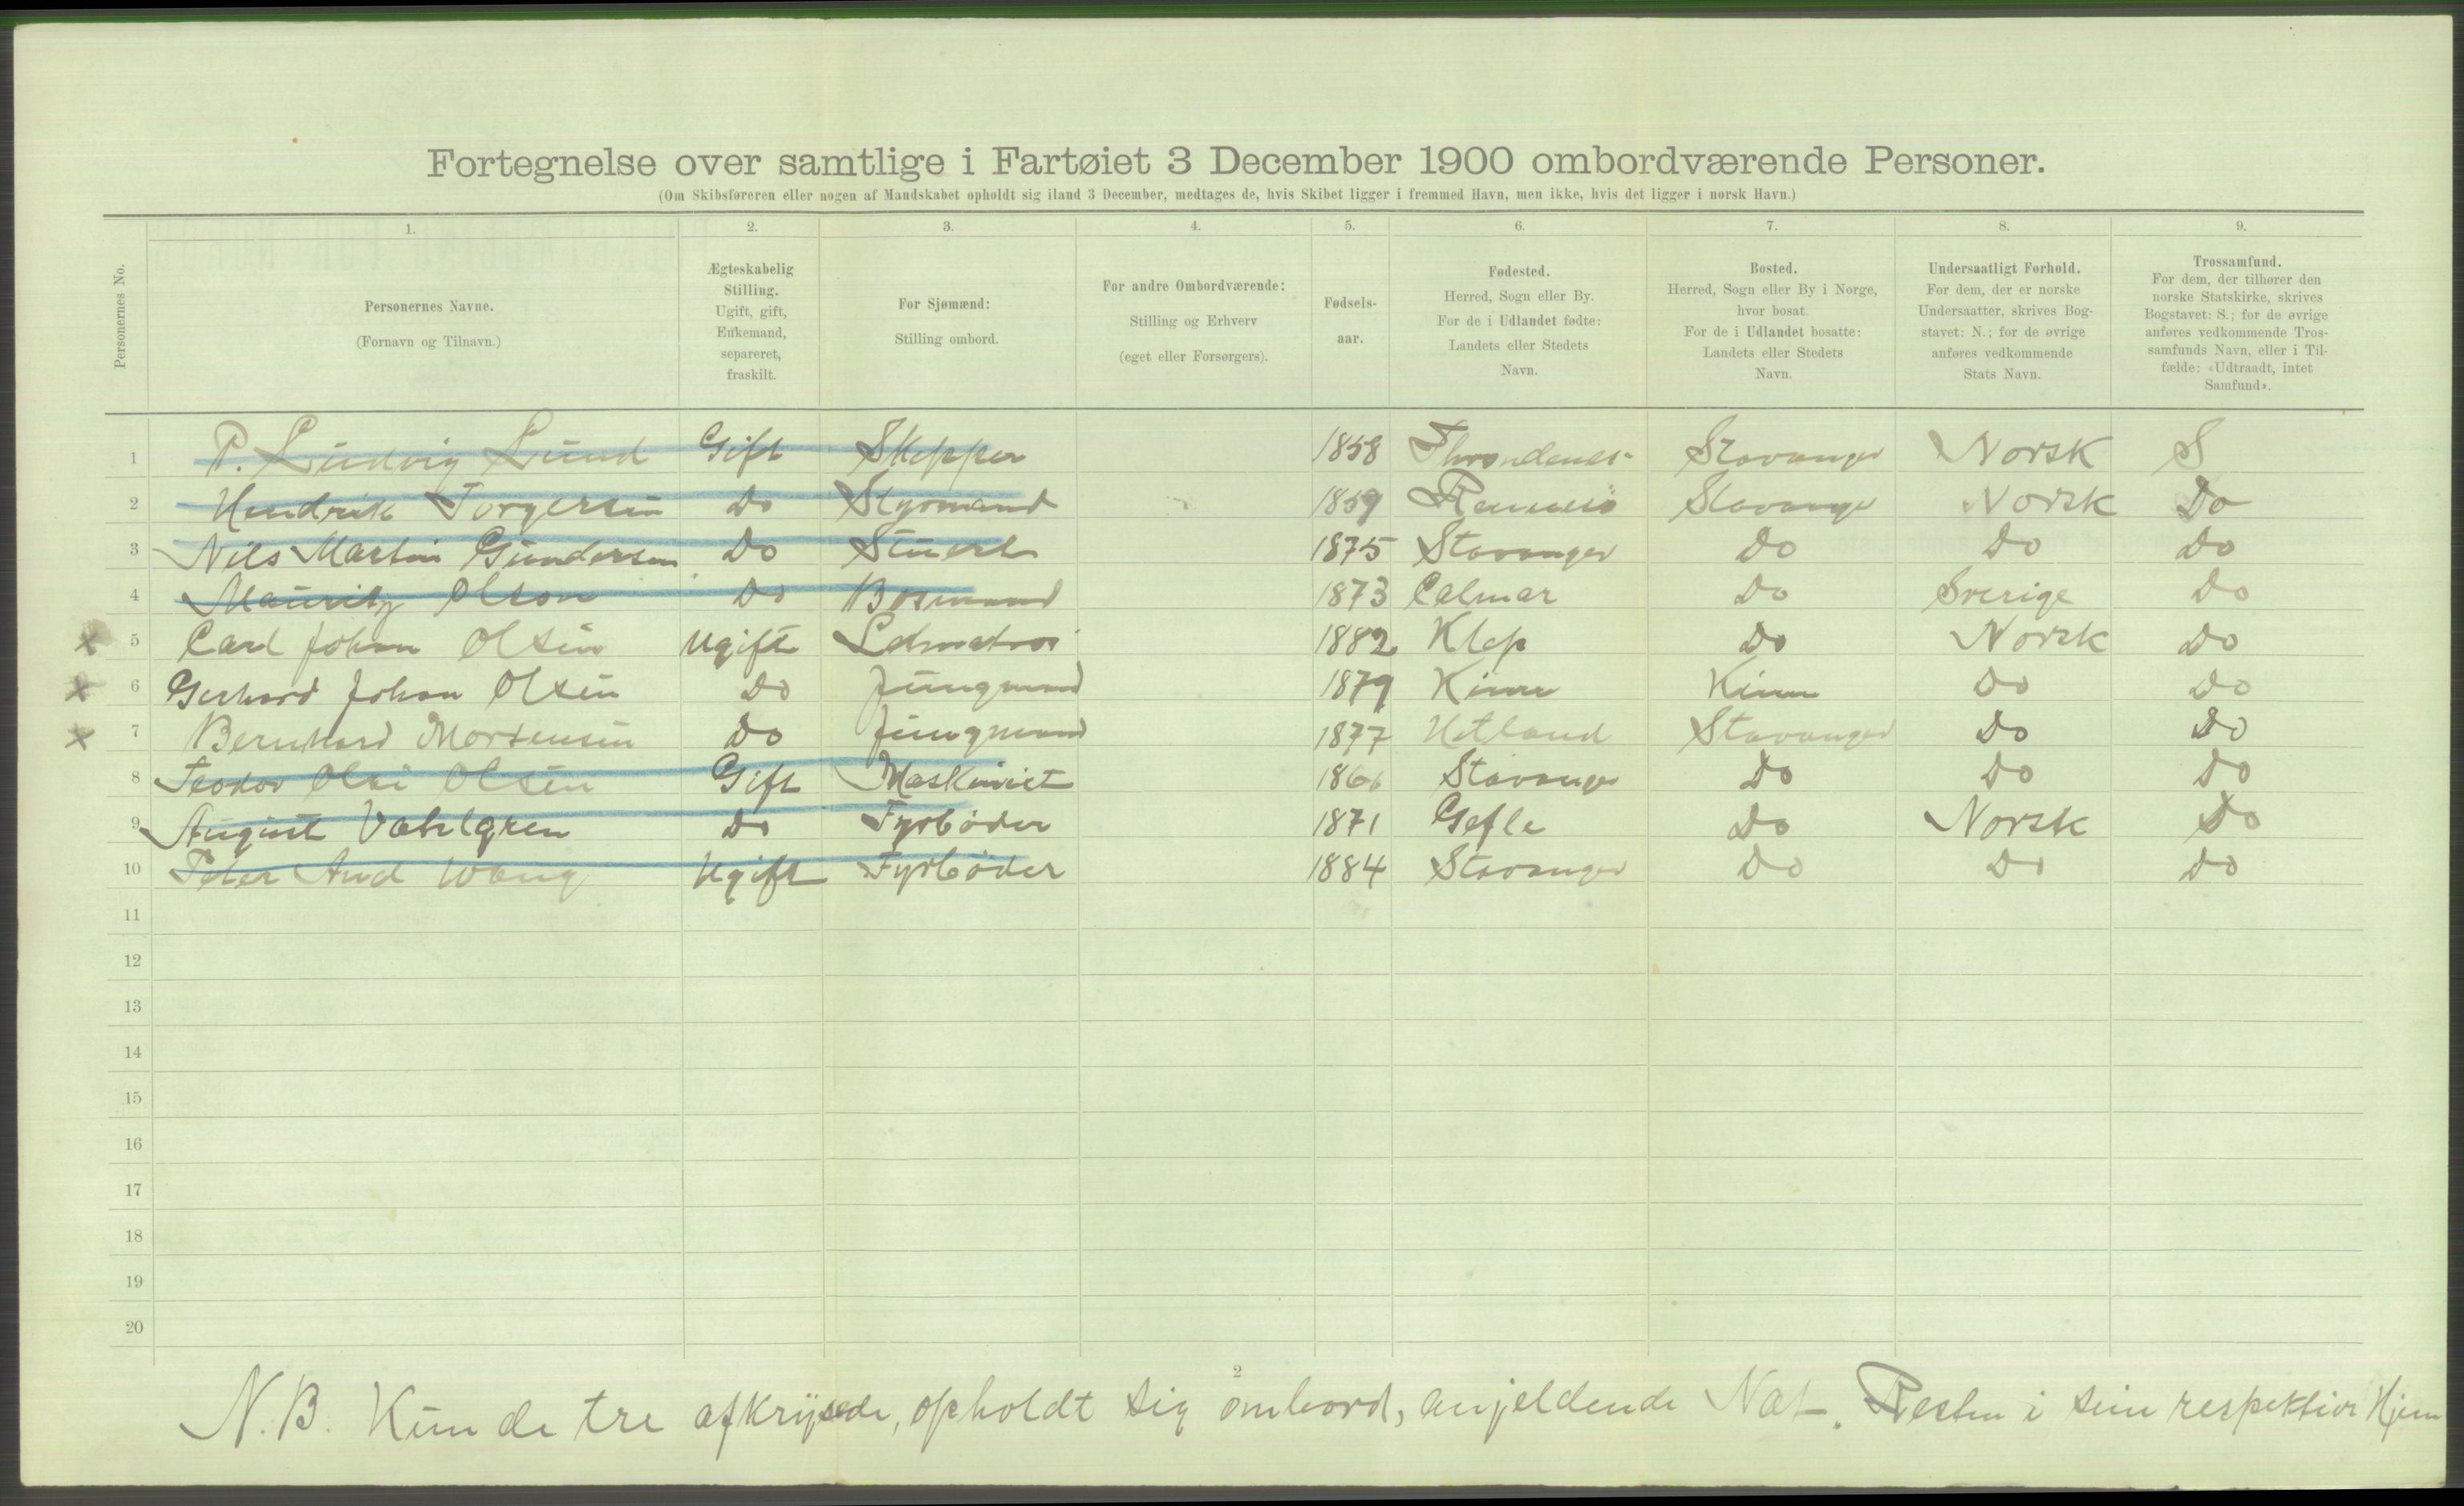 Fortegnelse over samtlige i Fartøiet 3 December 1900 ombordværende Personer.
(Om Skibsføreren eller nogen af Mandskabet opholdt sig iland 3 December, medtages de, hvis Skibet ligger i fremmed Havn, men ikke, hvis det ligger i norsk Havn.)
Personernes No.
1.
Personernes Navne.
(Fornavn og Tilnavn.)
2.
Ægteskabelig
Stilling.
Ugift, gift,
Enkemand,
separeret,
fraskilt.
3.
For Sjømænd:
Stilling ombord.
4.
For andre Ombordværende:
Stilling og Erhverv
(eget eller Forsørgers).
5.
Fødsels-
aar.
6.
Fødested.
Herred, Sogn eller By.
For de i Udlandet fødte:
Landets eller Stedets
Navn.
7.
Bosted.
Herred, Sogn eller By i Norge,
hvor bosat.
For de i Udlandet bosatte:
Landets eller Stedets
Navn.
8.
Undersaatligt Forhold.
For dem, der er norske
Undersaatter, skrives Bog-
stavet: N.; for de øvrige
anføres vedkommende
Stats Navn.
9.
Trossamfund.
For dem, der tilhører den
norske Statskirke, skrives
Bogstavet: S.; for de øvrige
anføres vedkommende Tros-
samfunds Navn, eller i Til-
fælde: «Udtraadt, intet
Samfund».
1 P. Ludvig Lund Gift Skepper 1858 Throndenes Stavanger Norsk S
2 Hendrik Torgersen Do Styrmand 1859 Rennesø Stavanger Norsk Do
3 Nils Martin Gundersen Do Stuert 1875 Stavanger Do Do Do
4 Mauritz Olson Do Bosmand 1873 Calmar Do Sverige Do
x 5 Carl Johan Olsen Ugift Letmatros 1882 Klep Do Norsk Do
x 6 Gerhard Johan Olsen Do Jungmand 1879 Kinn Kinn Do Do
x 7 Bernhard Mortensen Do Jungmand 1877 Hetland Stavanger Do Do
8 Teodor Olai Olsen Gift Maskinist 1866 Stavanger Do Do Do
9 August Vahlgren Do Fyrbøder 1871 Gefle Do Norsk Do
10 Peter And Wang Ugift Fyrbøder 1884 Stavanger Do Do Do
11
12
13
14
15
16
17
18
19
20
2
N.B. Kun de tre afkrysede, opholdt sig ombord, anjeldende Nat. Resten i sine respektive Hjem